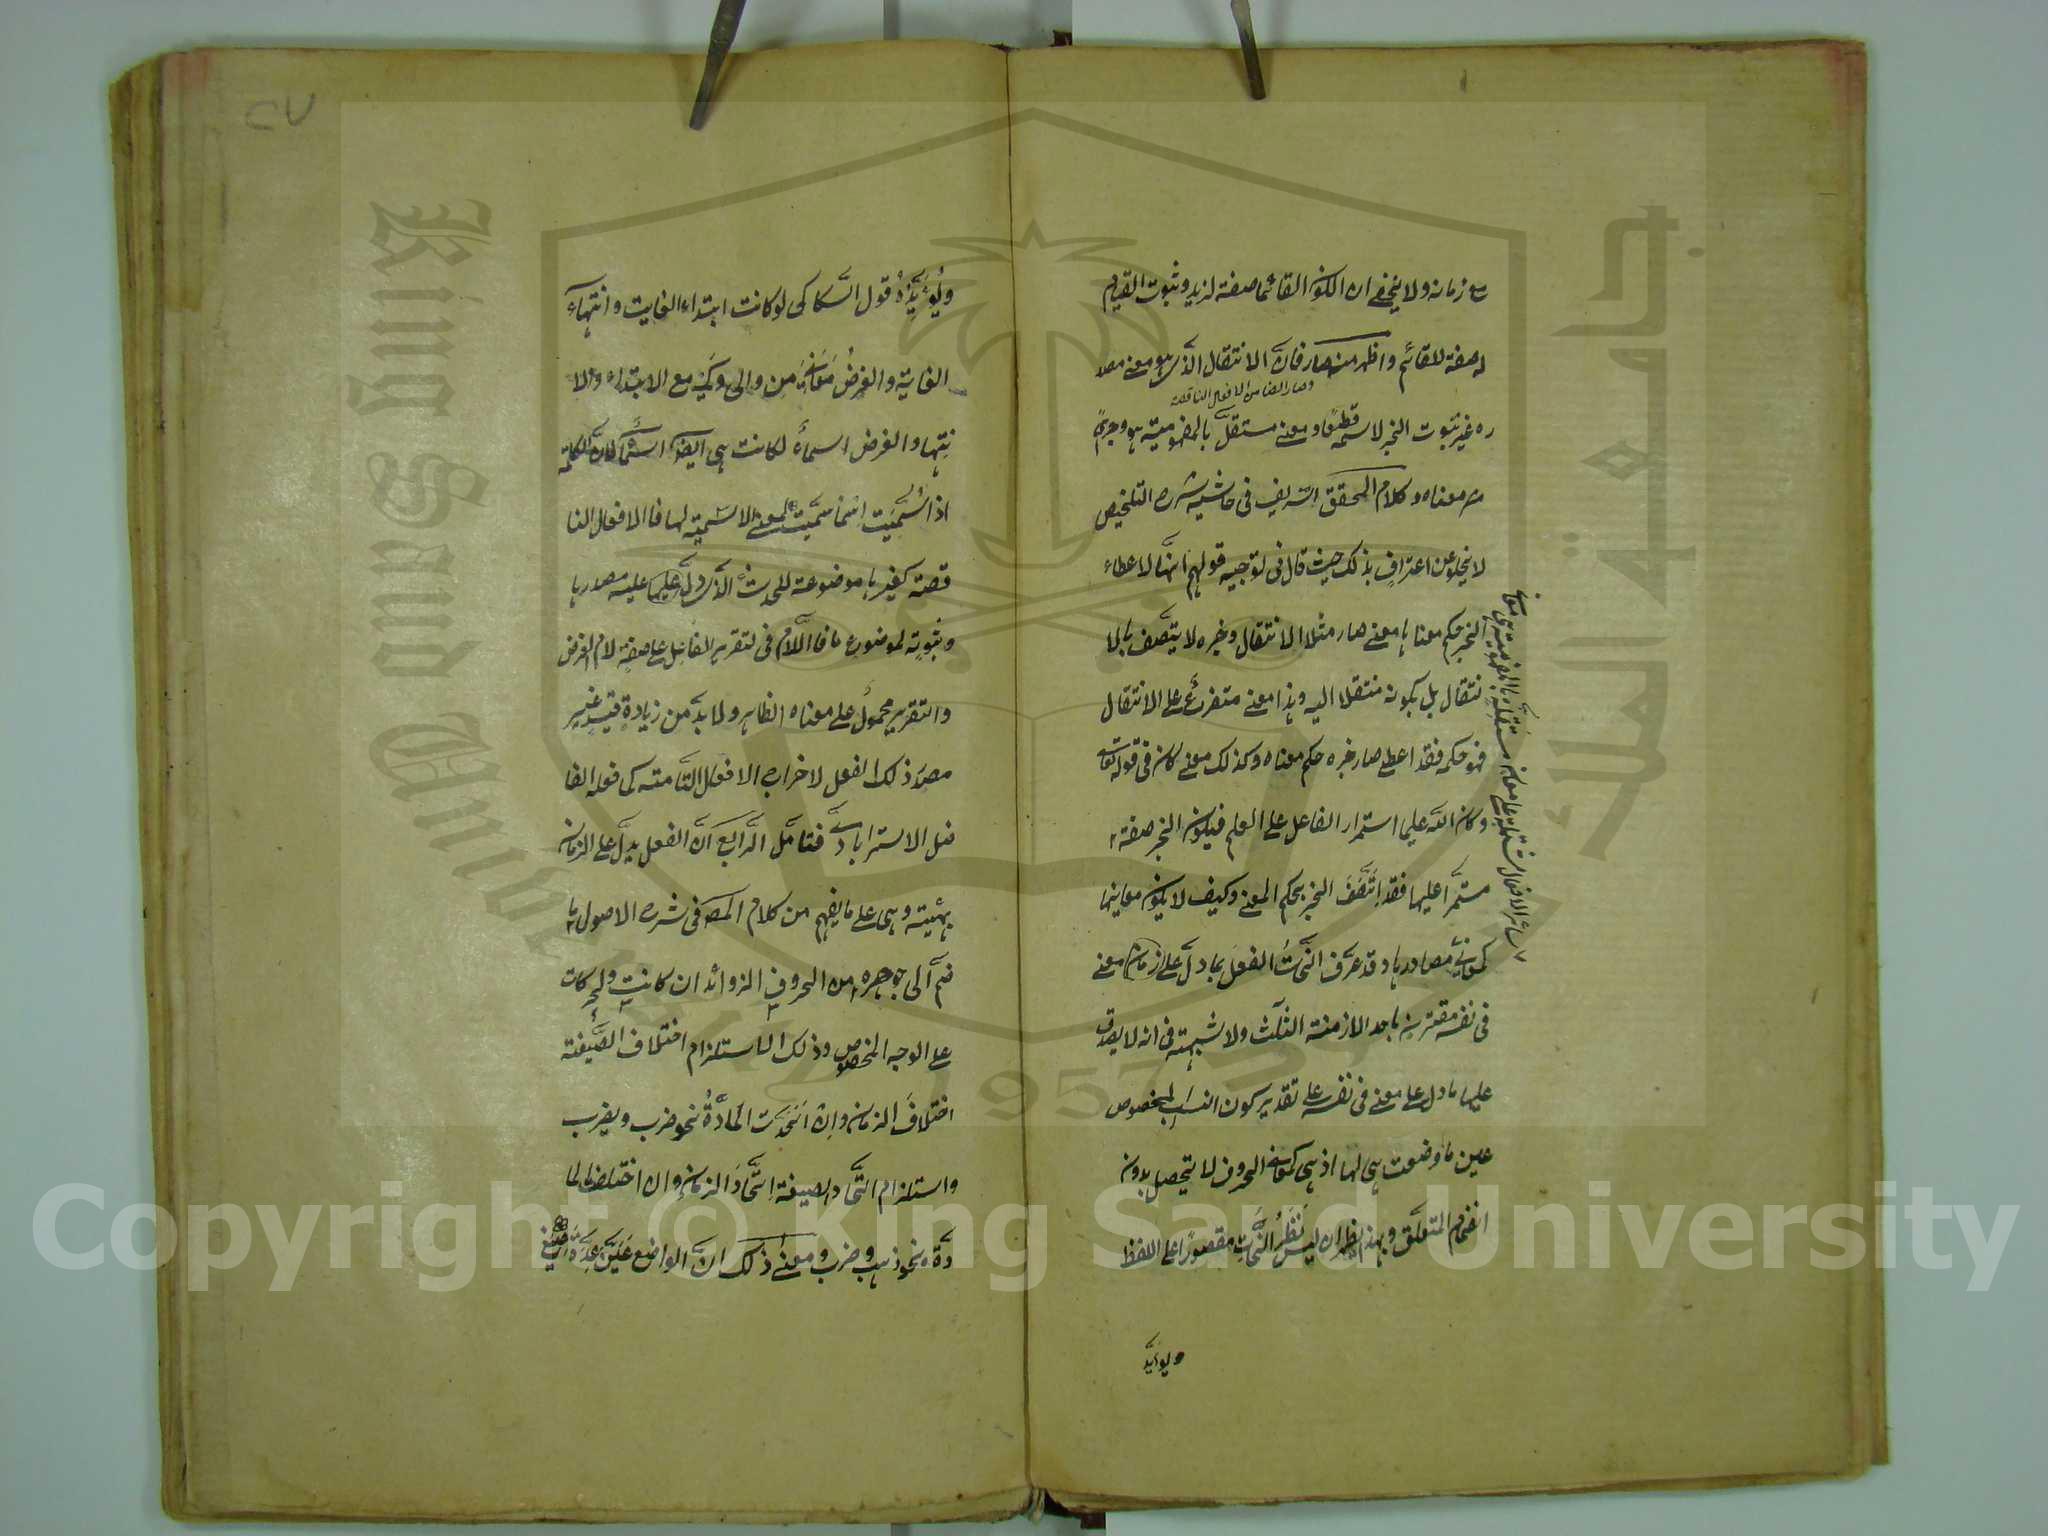 زمانه ولا يخفى ان الكون القائما صفة لزيد وثبوت القيام
له صفة للقائم واظهر منه صار فانّ الانتقال الذى هو معنى مصد
وصار ايضا من الافعال الناقصة
ره غير ثبوت الخبر لاسمه قطعًا ومعنى مستقلّ بالمفهومية هو وجزئى
معناه وكلام المحقق الشريف فى حاشية شرح التلخيص
لا يخلو عن اعتراف بذلك حيث قال فى توجيه قولهم انّها لاعطاء
الخبر حكم معناها معنى صار مثلا الانتقال وخبره لا يتّصف بالا
نتقال بل بكونه منتقلا اليه وهذا معنى متفرع على الانتقال
فهو حكمه فقد اعطى صار خبره حكم معناه وكذلك معنى كان فى قوله تعالى
وكان الله عليما استمرار الفاعل على العلم فيكون الخبر صفة
مستمرّا عليها فقد اتّصف الخبر بحكم المعنى وكيف لا يكون معانيها
كمعانى مصادرها وقد عرّف النّحاة الفعل بما دلّ على معنى
فى نفسه مقترن باحد الازمنة الثلث ولا شبهة فى انه لا يصدق
عليها ما دل على معنى فى نفسه على تقدير كون النسب المخصوص
عين ما وضعت هى لها اذ هى كمعانى الحروف لا يتحصل بدون
انضمام المتعلّق وبهذا ظهر ان ليس نظر النّحاة مقصورًا على اللفظ
ويؤيّد
الافعال مشتملة على معان مستقلة بالمفهومية هى معانى
٢٧
ويؤيّده قول السّكاكى لو كانت ابتداء الغايت وانتهاء
الغاية والغرض معانى من والى وكى مع الابتداء والا
نتهاء والغرض اسماء لكانت هى ايضا اسماء لانّ الكلمة
اذا سمّيت اسما سمّيت لمعنى الاسمية لها فا الافعال النا
قصة كغيرها موضوعة للحدث الذى دلّ عليه مصدرها
وثبوته لموضوع ما فا اللّام فى لتقرير الفاعل على صفة لام الغرض
والتقرير محمول على معناه الظاهر ولا بدّ من زيادة قيد غير
مصدر ذلك الفعل لاخراج الافعال التّامة كما فعله الفا
ضل الاسترابادىّ فتامّل الرّابع انّ الفعل يدلّ على الزمان
بهيئته وهى على ما يفهم من كلام المص فى شرح الاصول ما
ضمّ الى جوهره من الحروف الزوائد ان كانت والحركات
على الوجه المخصوص وذلك لاستلزام اختلاف الصّيغة
اختلاف الزمان وان اتّحدت المادّة نحو ضرب ويضرب
واستلزام اتّحاد الصيغة اتّحاد الزمان وان اختلفا لما
دّة نحو ذهب وضرب ومعنى ذلك انّ الواضع عيّن عدّة صيغ
Copyright © King Saud University
King Saud University
جامعة الملك سعود
1957